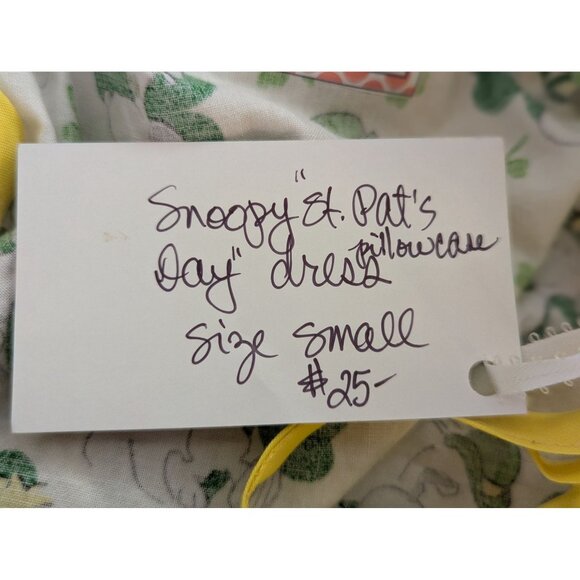 Snoopy "St. Pat's
Day" dress pillowcase
size small
$25-